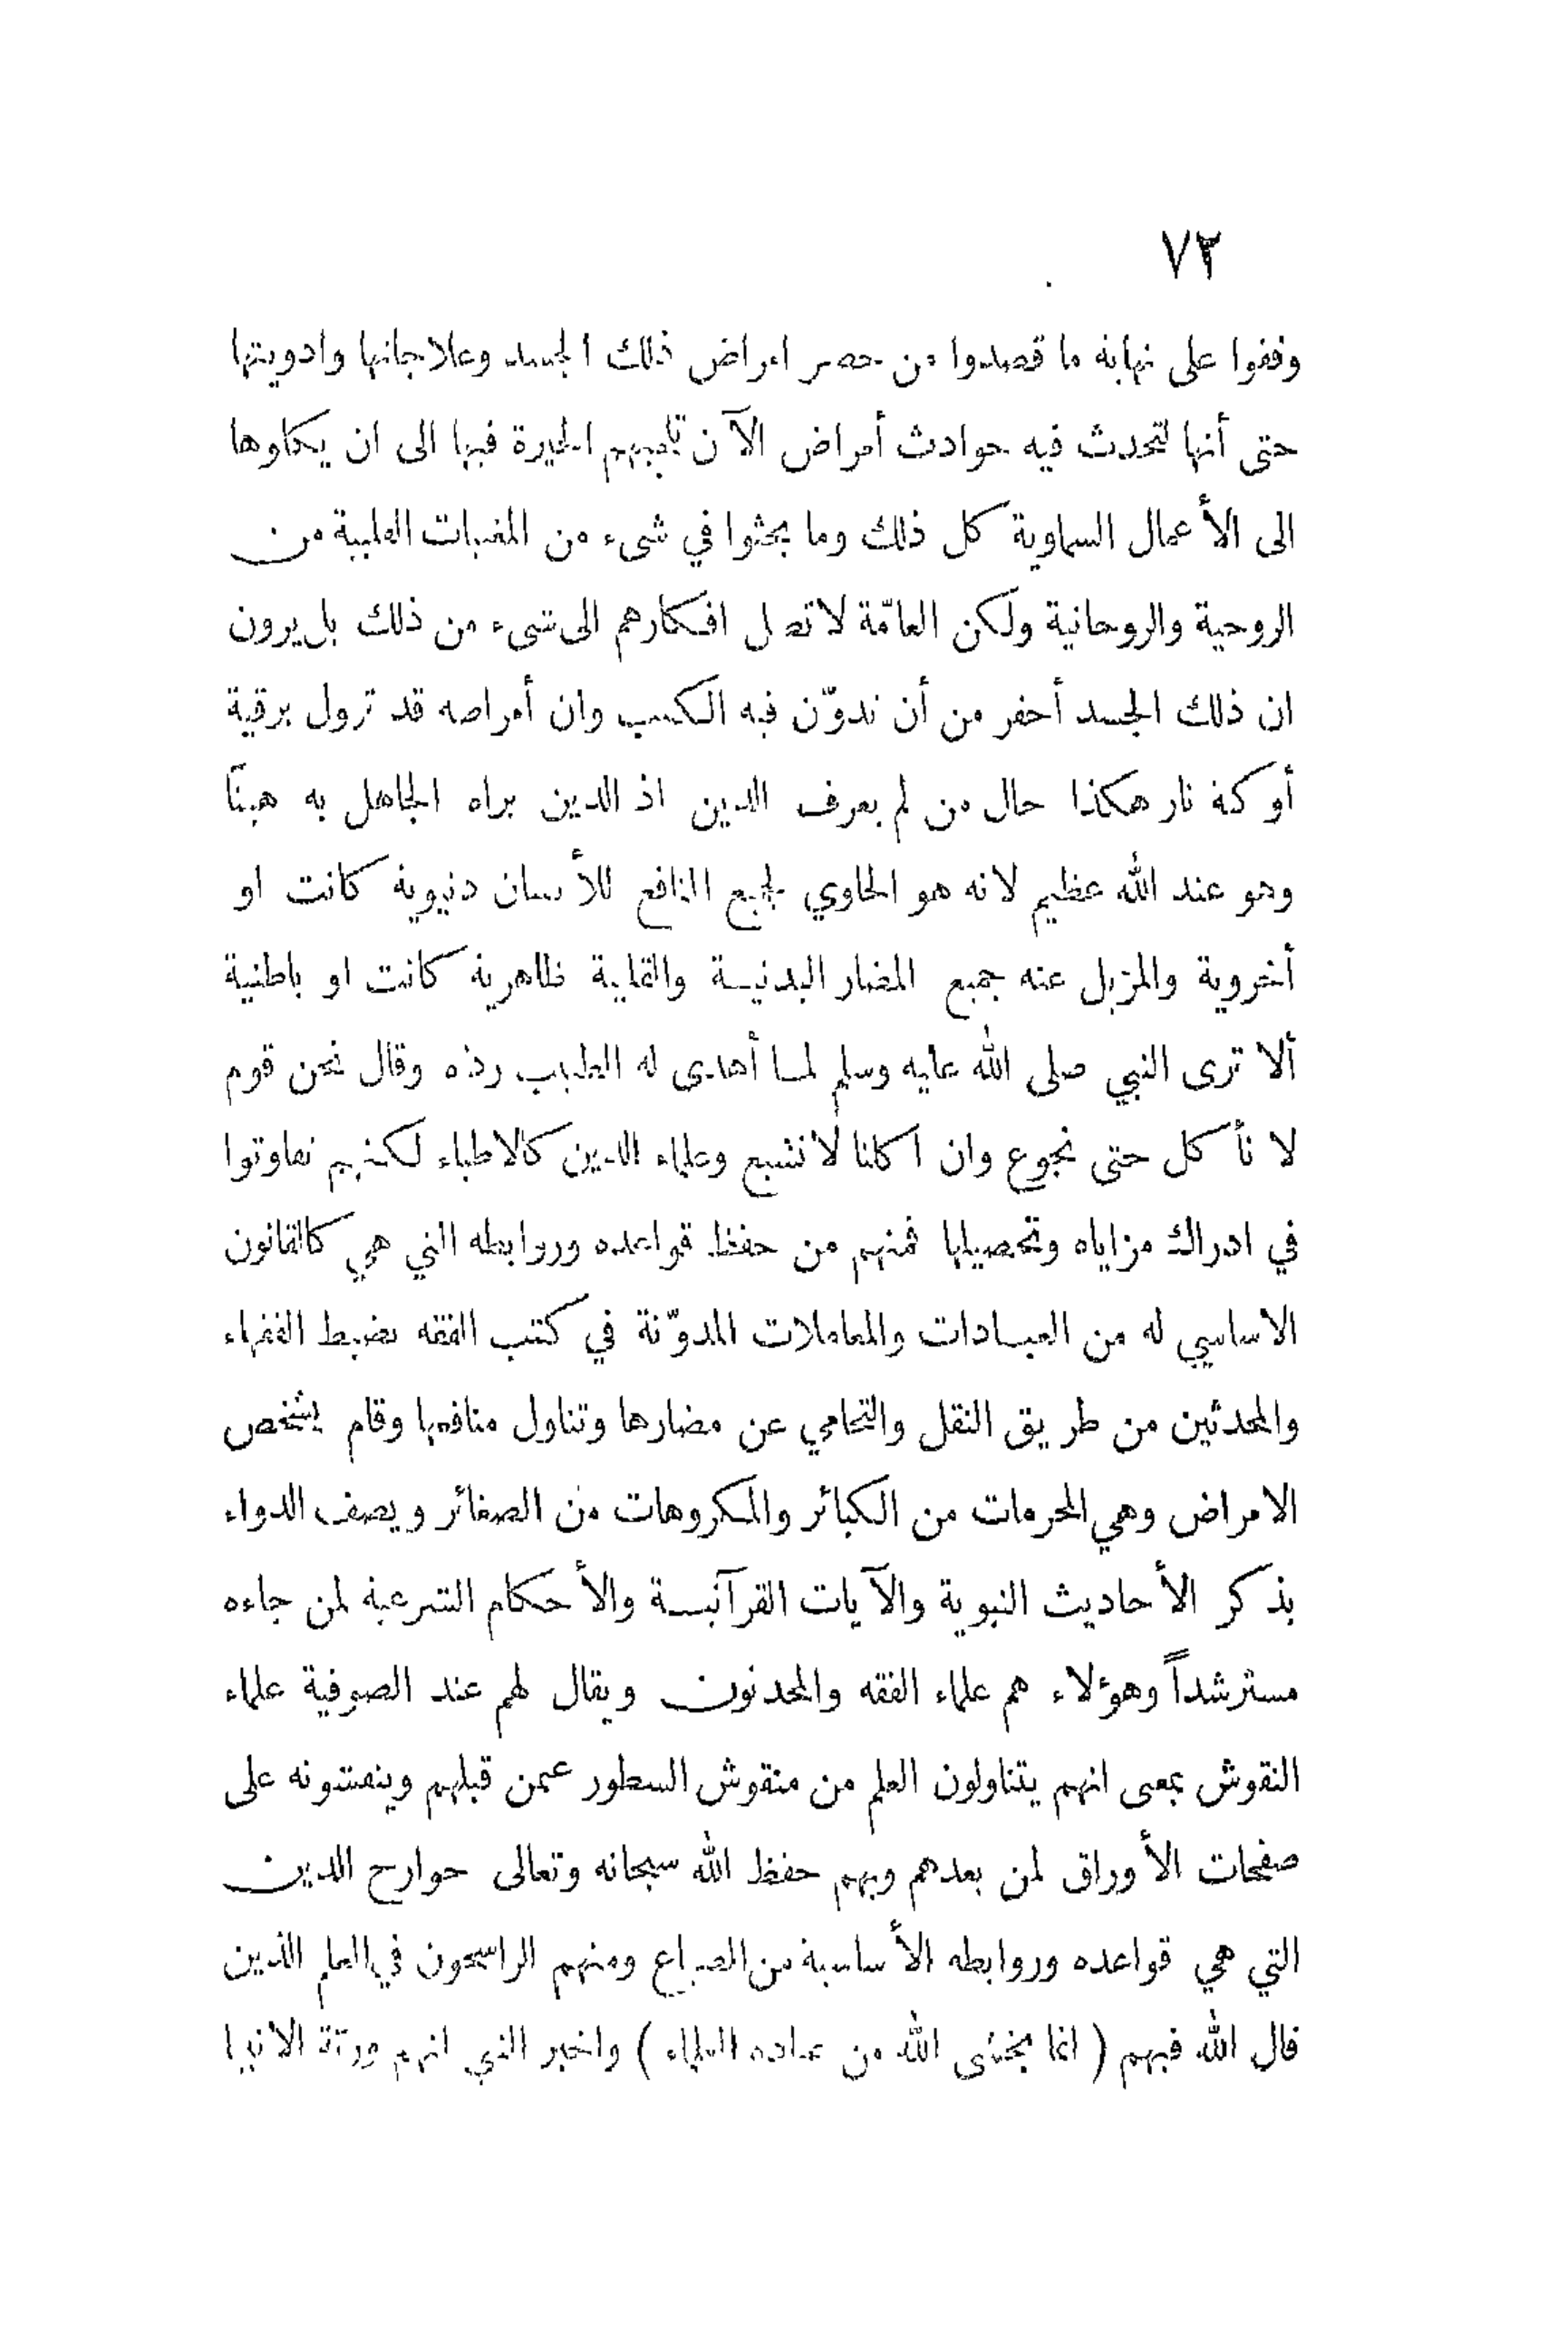 ٧٢
وقفوا على نهاية ما قصدوا من حصر امراض ذلك الجسد وعلاجاتها وادويتها
حتى أنها لتحدث فيه حوادث أمراض الآن تلجيهم الحيرة فيها الى ان يكلوها
الى الأعمال السماوية كل ذلك وما بحثوا في شيء من المغيبات القلبية من
الروحية والروحانية ولكن العامّة لا تصل افكارهم الى شيء من ذلك بل يرون
ان ذلك الجسد أحقر من أن تدوّن فيه الكتب وان أمراضه قد تزول برقية
أو كية نار هكذا حال من لم يعرف الدين اذ الدين يراه الجاهل به هيناً
وهو عند الله عظيم لانه هو الحاوي لجميع المنافع للأنسان دنيوية كانت او
أخروية والمزيل عنه جميع المضار البدنيــة والقلبية ظاهرية كانت او باطنية
ألا ترى النبي صلى الله عليه وسلم لمــا أهدى له الطبيب رده وقال نحن قوم
لا نأكل حتى نجوع وان اكلنا لا نشبع وعلماء الدين كالاطباء لكنهم تفاوتوا
في ادراك مزاياه وتحصيلها فمنهم من حفظ قواعده وروابطه التي هي كالقانون
الاساسي له من العبــادات والمعاملات المدوّنة في كتب الفقه بضبط الفقهاء
والمحدثين من طريق النقل والتحامي عن مضارها وتناول منافعها وقام يشخص
الامراض وهي المحرمات من الكبائر والمكروهات من الصغائر ويصف الدواء
بذكر الأحاديث النبوية والآيات القرآنيــة والأحكام الشرعية لمن جاءه
مسترشداً وهؤلاء هم علماء الفقه والمحدثون ويقال لهم عند الصوفية علماء
النقوش بمعنى انهم يتناولون العلم من منقوش السطور عمن قبلهم وينقشونه على
صفحات الأوراق لمن بعدهم وبهم حفظ الله سبحانه وتعالى جوارح الدين
التي هي قواعده وروابطه الأساسية من الضياع ومنهم الراسخون في العلم الذين
قال الله فيهم ( انما يخشى الله من عباده العلماء ) واخبر النبي انهم ورثة الانبيا